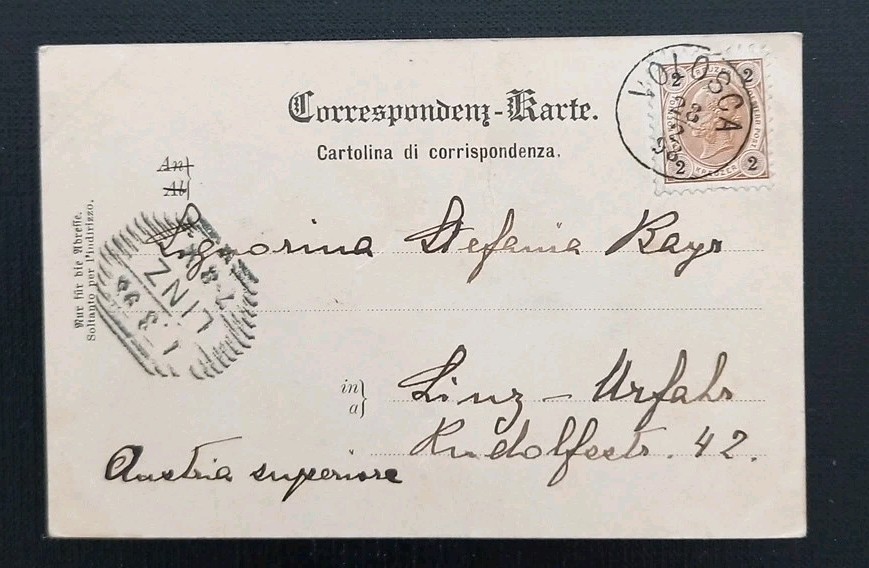 Correspondenz-Karte.
Cartolina di corrispondenza.
An
Al
VOLOSCA
2 2
2 KREUZER 2
Nur für die Adresse.
Soltanto per l'indirizzo.
Signorina Stefania Bayr
LINZ
in
a
Linz - Urfahr
Rudolfsstr. 42.
Austria superiore